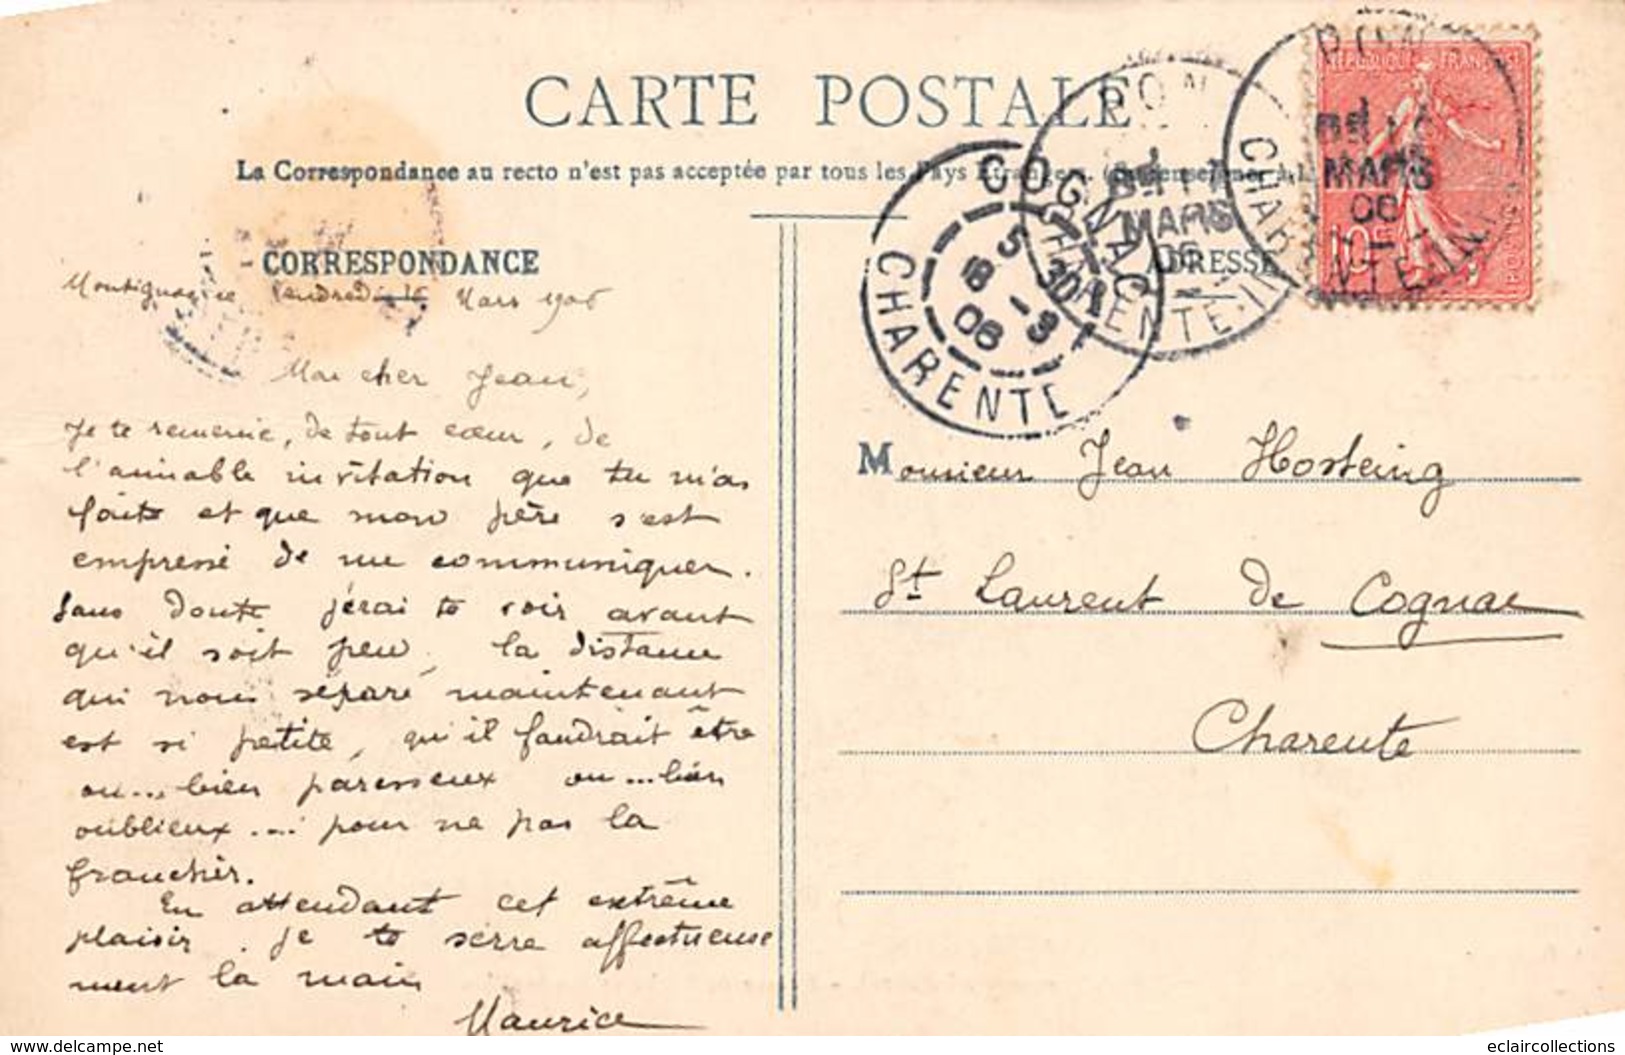 CARTE POSTALE
La Correspondance au recto n'est pas acceptée par tous les Pays Etrangers.
CORRESPONDANCE
ADRESSE
Vendredi 16 Mars 1906
Mon cher Jean,
Je te remercie, de tout cœur, de
l'aimable invitation que tu m'as
faite et que mon père s'est
empressé de me communiquer.
Sans doute j'irai te voir avant
qu'il soit peu, la distance
qui nous separe maintenant
est si petite, qu'il faudrait être
ou... bien paresseux ou... bien
oublieux... pour ne pas la
franchir.
En attendant cet extrême
plaisir, je te serre affectueuse
ment la main
Maurice
Monsieur Jean Hosteing
St Laurent de Cognac
Charente
COGNAC
CHARENTE
5 30
18 -3
06
MARS
06
CHARENTE-IN
MARS
06
CHARENTE-INF
REPUBLIQUE FRANÇAISE
10c
POSTES
www.delcampe.net
eclaircollections